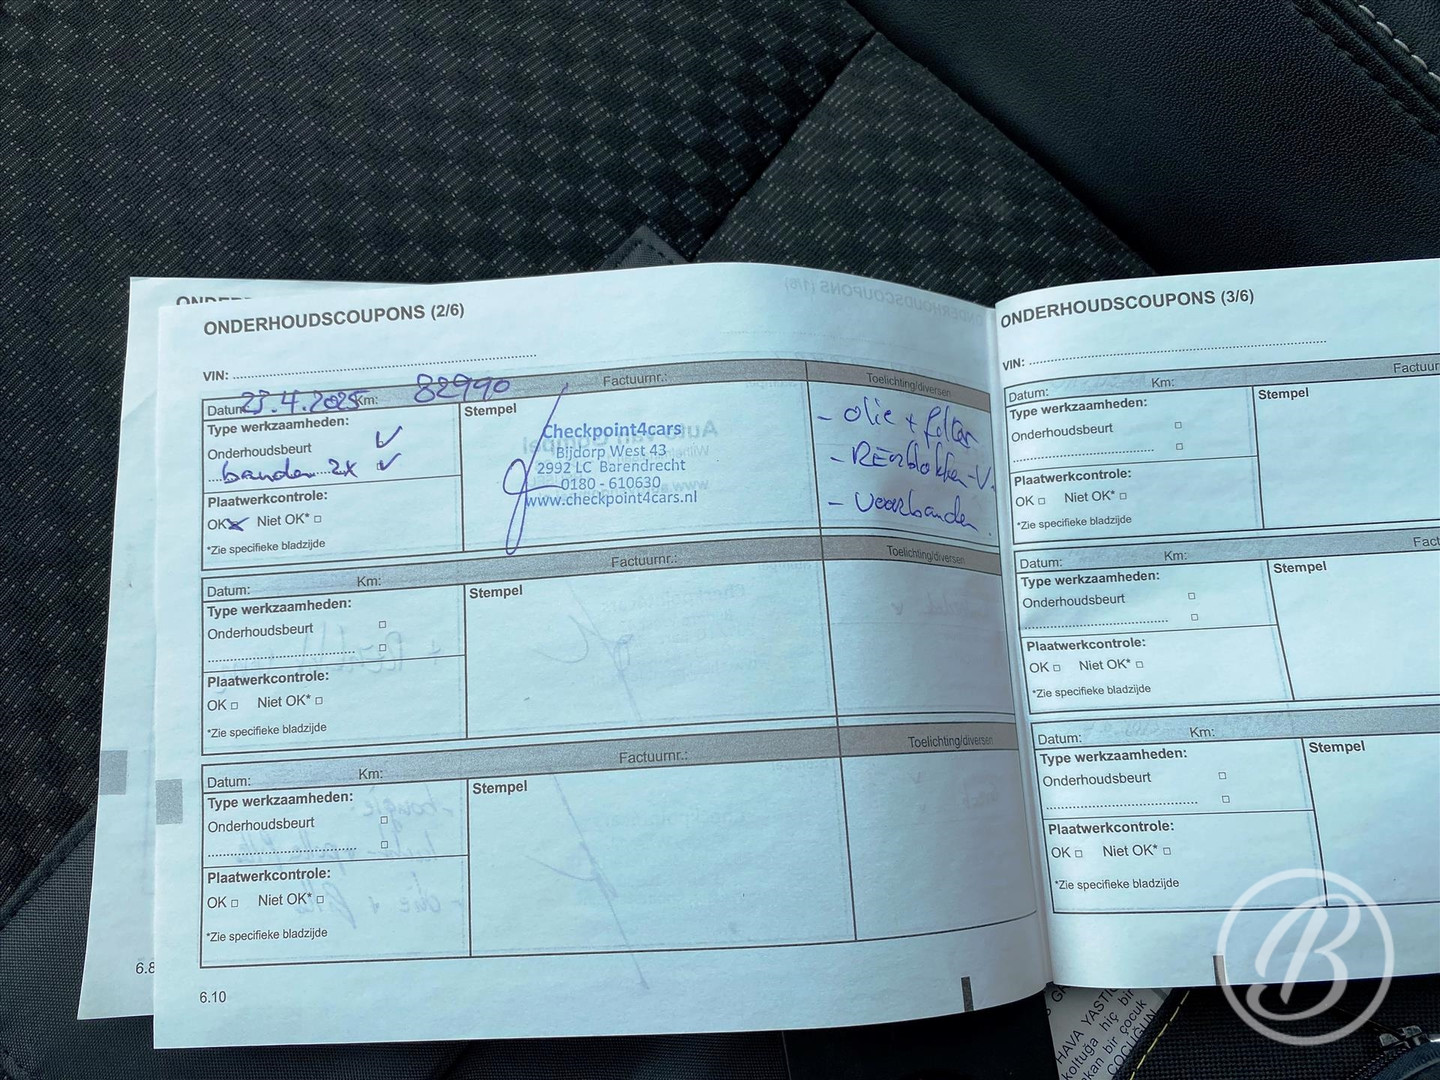 ONDERHOUDSCOUPONS (2/6)
VIN:
Datum: 23.4.2025 Km: 82990 Factuurnr.: Toelichting/diversen
Type werkzaamheden:
Onderhoudsbeurt ✓
banden 2x ✓
Plaatwerkcontrole:
OK Niet OK*
*Zie specifieke bladzijde
Stempel
Checkpoint4cars
Bijdorp West 43
2992 LC Barendrecht
0180 - 610630
www.checkpoint4cars.nl
- olie + filter
- REmblokken-V.
- voorbanden
Datum: Km: Factuurnr.: Toelichting/diversen
Type werkzaamheden:
Onderhoudsbeurt
Plaatwerkcontrole:
OK Niet OK*
*Zie specifieke bladzijde
Stempel
Datum: Km: Factuurnr.: Toelichting/diversen
Type werkzaamheden:
Onderhoudsbeurt
Plaatwerkcontrole:
OK Niet OK*
*Zie specifieke bladzijde
Stempel
6.10
ONDERHOUDSCOUPONS (3/6)
VIN:
Datum: Km: Factuur
Type werkzaamheden:
Onderhoudsbeurt
Plaatwerkcontrole:
OK Niet OK*
*Zie specifieke bladzijde
Stempel
Datum: Km: Fact
Type werkzaamheden:
Onderhoudsbeurt
Plaatwerkcontrole:
OK Niet OK*
*Zie specifieke bladzijde
Stempel
Datum: Km:
Type werkzaamheden:
Onderhoudsbeurt
Plaatwerkcontrole:
OK Niet OK*
*Zie specifieke bladzijde
Stempel
6.8
HAVA YASTIĞ
koltuğa hiç bir
bir çocuk
ÇOCUĞUN
B